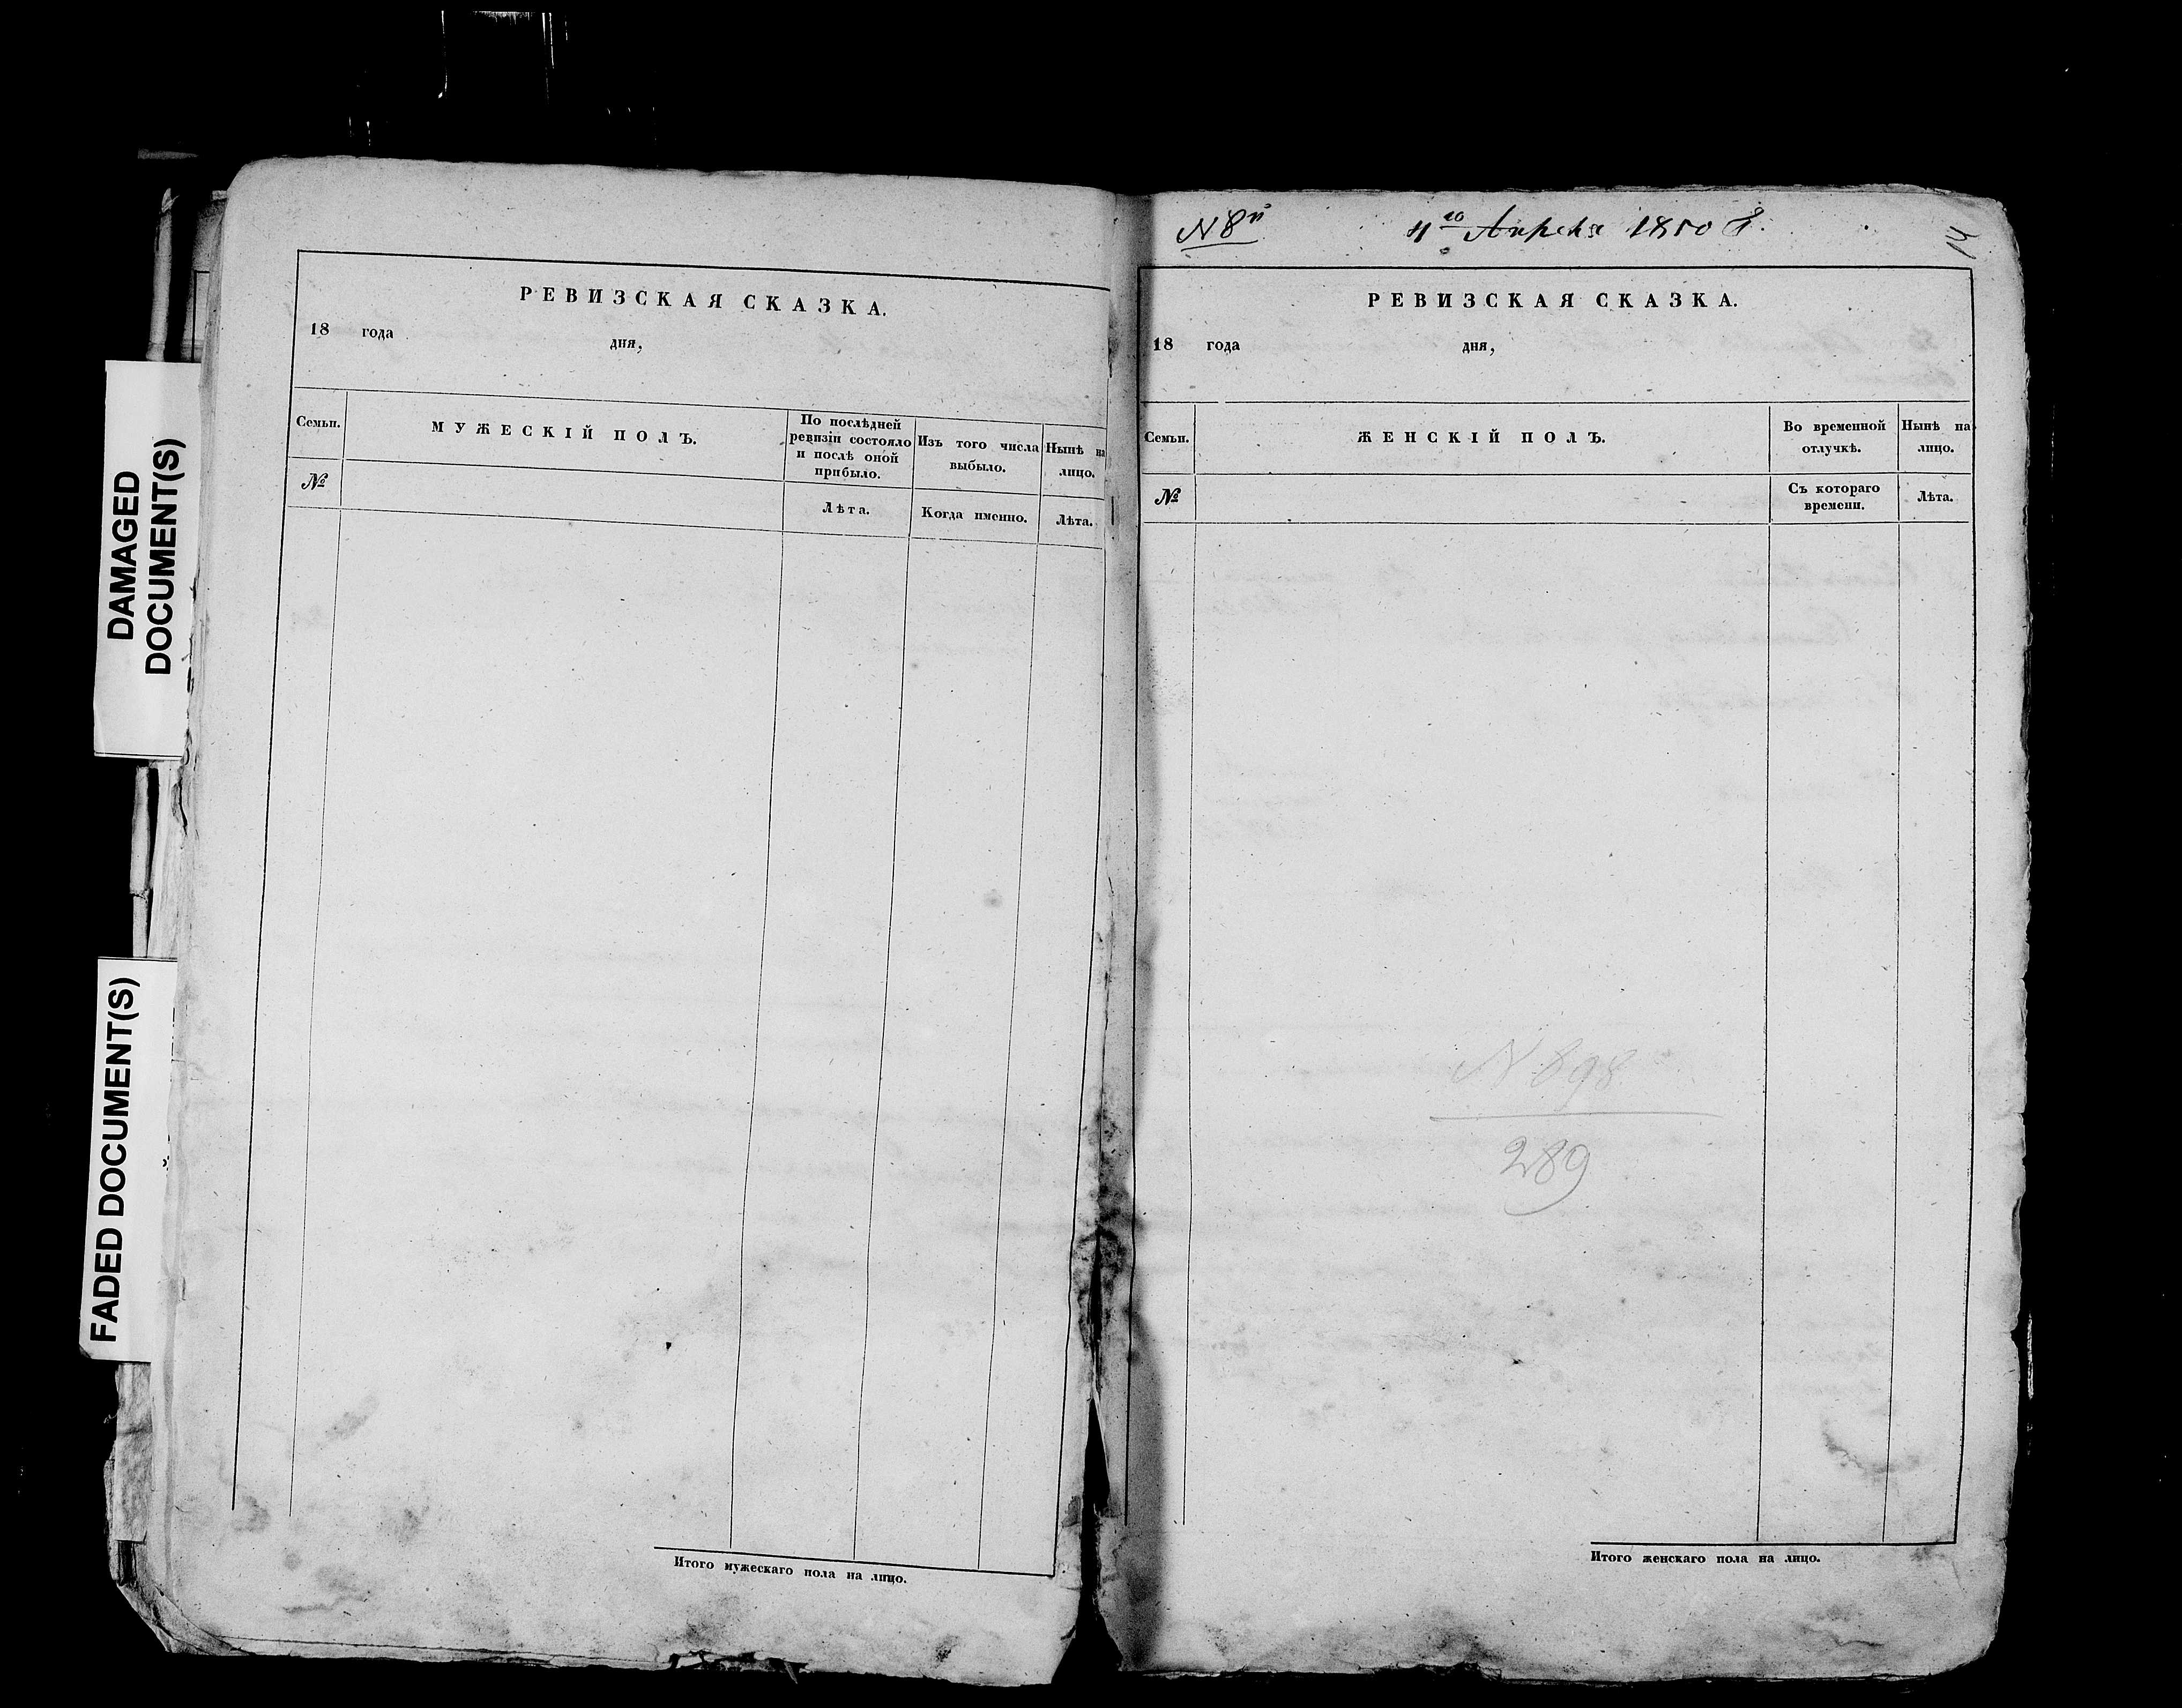 DAMAGED
DOCUMENT(S)
FADED DOCUMENT(S)
РЕВИЗСКАЯ СКАЗКА.
18 года дня,
Семьи.
МУЖЕСКІЙ ПОЛЪ.
По послѣдней
ревизіи состояло
и послѣ оной
прибыло.
Изъ того числа
выбыло.
Нынѣ на
лицо.
№
Лѣта.
Когда именно.
Лѣта.
Итого мужескаго пола на лицо.
N 8й 4го Апреля 1850 Г.
14
РЕВИЗСКАЯ СКАЗКА.
18 года дня,
Семьи.
ЖЕНСКІЙ ПОЛЪ.
Во временной
отлучкѣ.
Нынѣ на
лицо.
№
Съ котораго
времени.
Лѣта.
N 898
289
Итого женскаго пола на лицо.